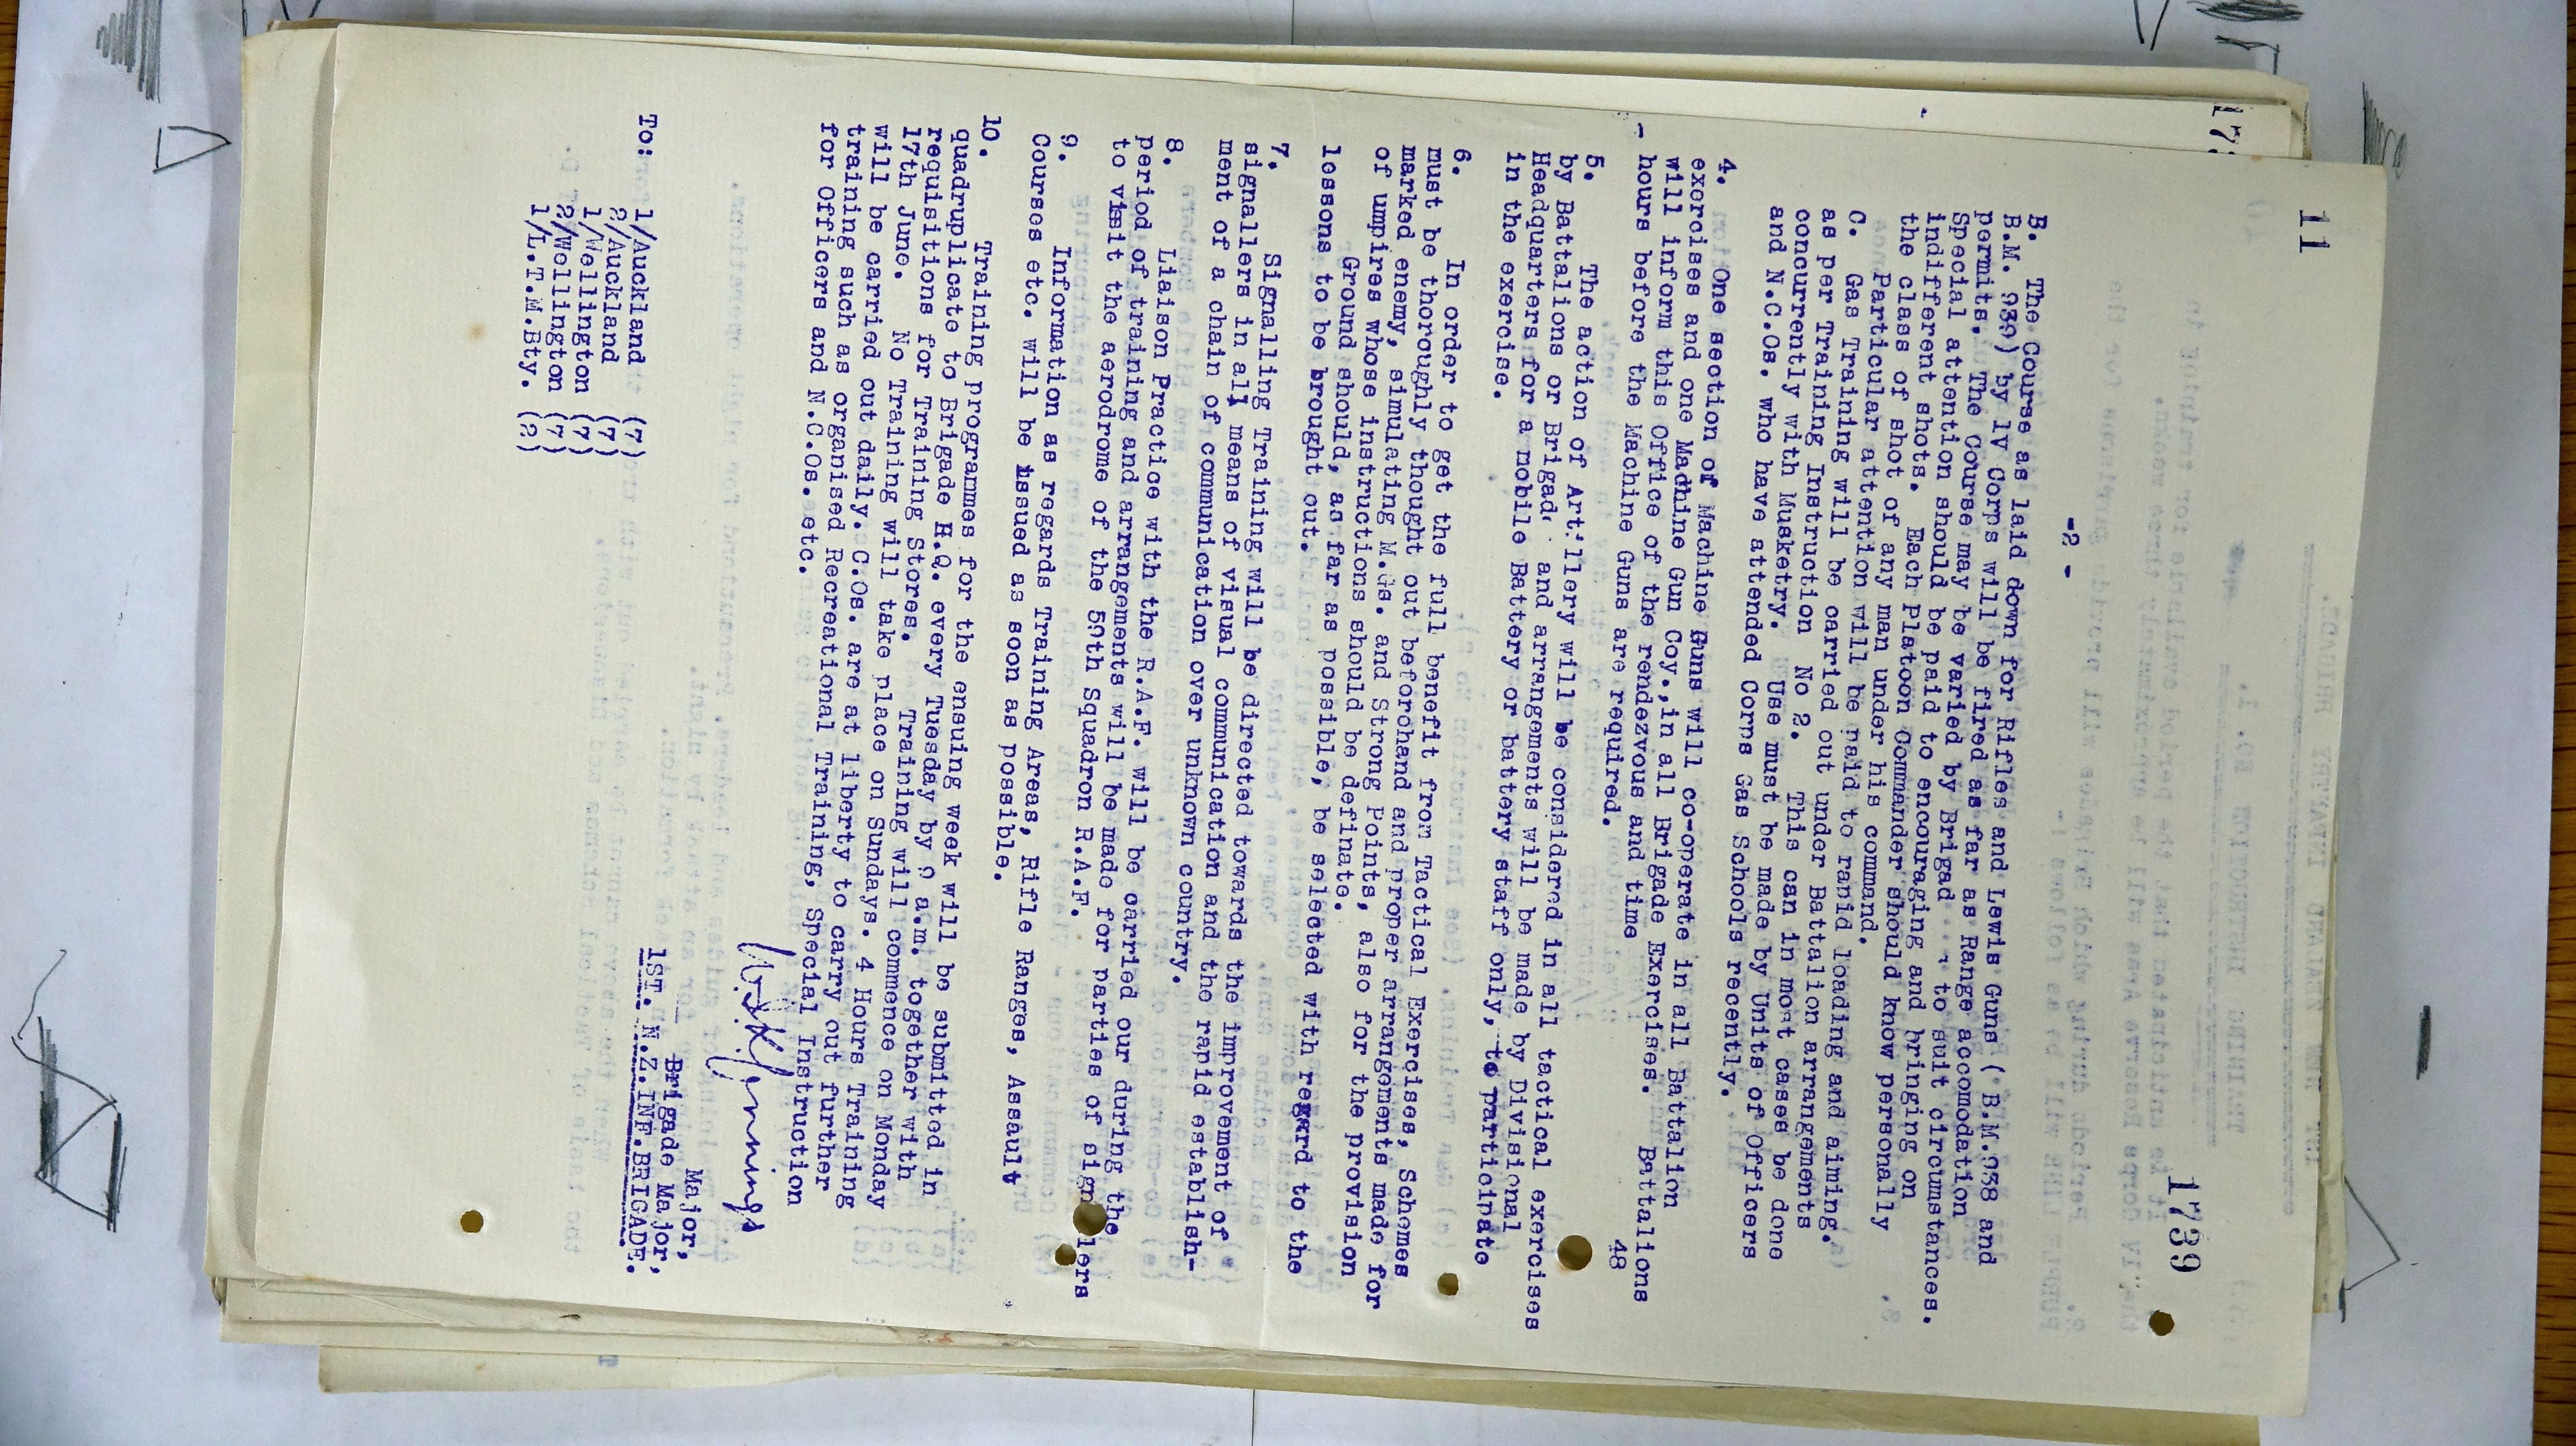 11
1739
-2-
B. The Course as laid down for Rifles and Lewis Guns ( B.M.938 and
B.M. 939) by lV Corps will be fired as far as Range accomodation
permits. The Course may be varied by Brigad to suit circumstances.
Special attention should be paid to encouraging and bringing on
indifferent shots. Each Platoon Commander should know personally
the class of shot of any man under his command.
Particular attention will be paid to rapid loading and aiming.
C. Gas Training will be carried out under Battalion arrangements
as per Training Instruction No 2. This can in most cases be done
concurrently with Musketry. Use must be made by Units of Officers
and N.C.Os. who have attended Corps Gas Schools recently.
4. One section of Machine Guns will co-operate in all Battalion
exercises and one Machine Gun Coy., in all Brigade Exercises. Battalions
will inform this Office of the rendezvous and time 48
- hours before the Machine Guns are required.
5. The action of Artillery will be considered in all tactical exercises
by Battalions or Brigad and arrangements will be made by Divisional
Headquarters for a mobile Battery or battery staff only, to participate
in the exercise.
6. In order to get the full benefit from Tactical Exercises, Schemes
must be thoroughly thought out beforehand and proper arrangements made for
marked enemy, simulating M.Gs. and Strong Points, also for the provision
of umpires whose instructions should be definate.
Ground should, as far as possible, be selected with regard to the
lessons to be brought out.
7. Signalling Training will be directed towards the improvement of
signallers in all means of visual communication and the rapid establish-
ment of a chain of communication over unknown country.
8. Liaison Practice with the R.A.F. will be carried our during the
period of training and arrangements will be made for parties of signallers
to visit the aerodrome of the 59th Squadron R.A.F.
9. Information as regards Training Areas, Rifle Ranges, Assault
Courses etc. will be issued as soon as possible.
10. Training programmes for the ensuing week will be submitted in
quadruplicate to Brigade H.Q. every Tuesday by 9 a.m. together with
requisitions for Training Stores. Training will commence on Monday
17th June. No Training will take place on Sundays. 4 Hours Training
will be carried out daily. C.Os. are at liberty to carry out further
training such as organised Recreational Training, Special Instruction
for Officers and N.C.Os. etc.
Jennings
Major,
Brigade Major,
1ST. N.Z.INF.BRIGADE.
To: 1/Auckland (7)
2/Auckland (7)
1/Wellington (7)
2/Wellington (7)
1/L.T.M.Bty. (2)